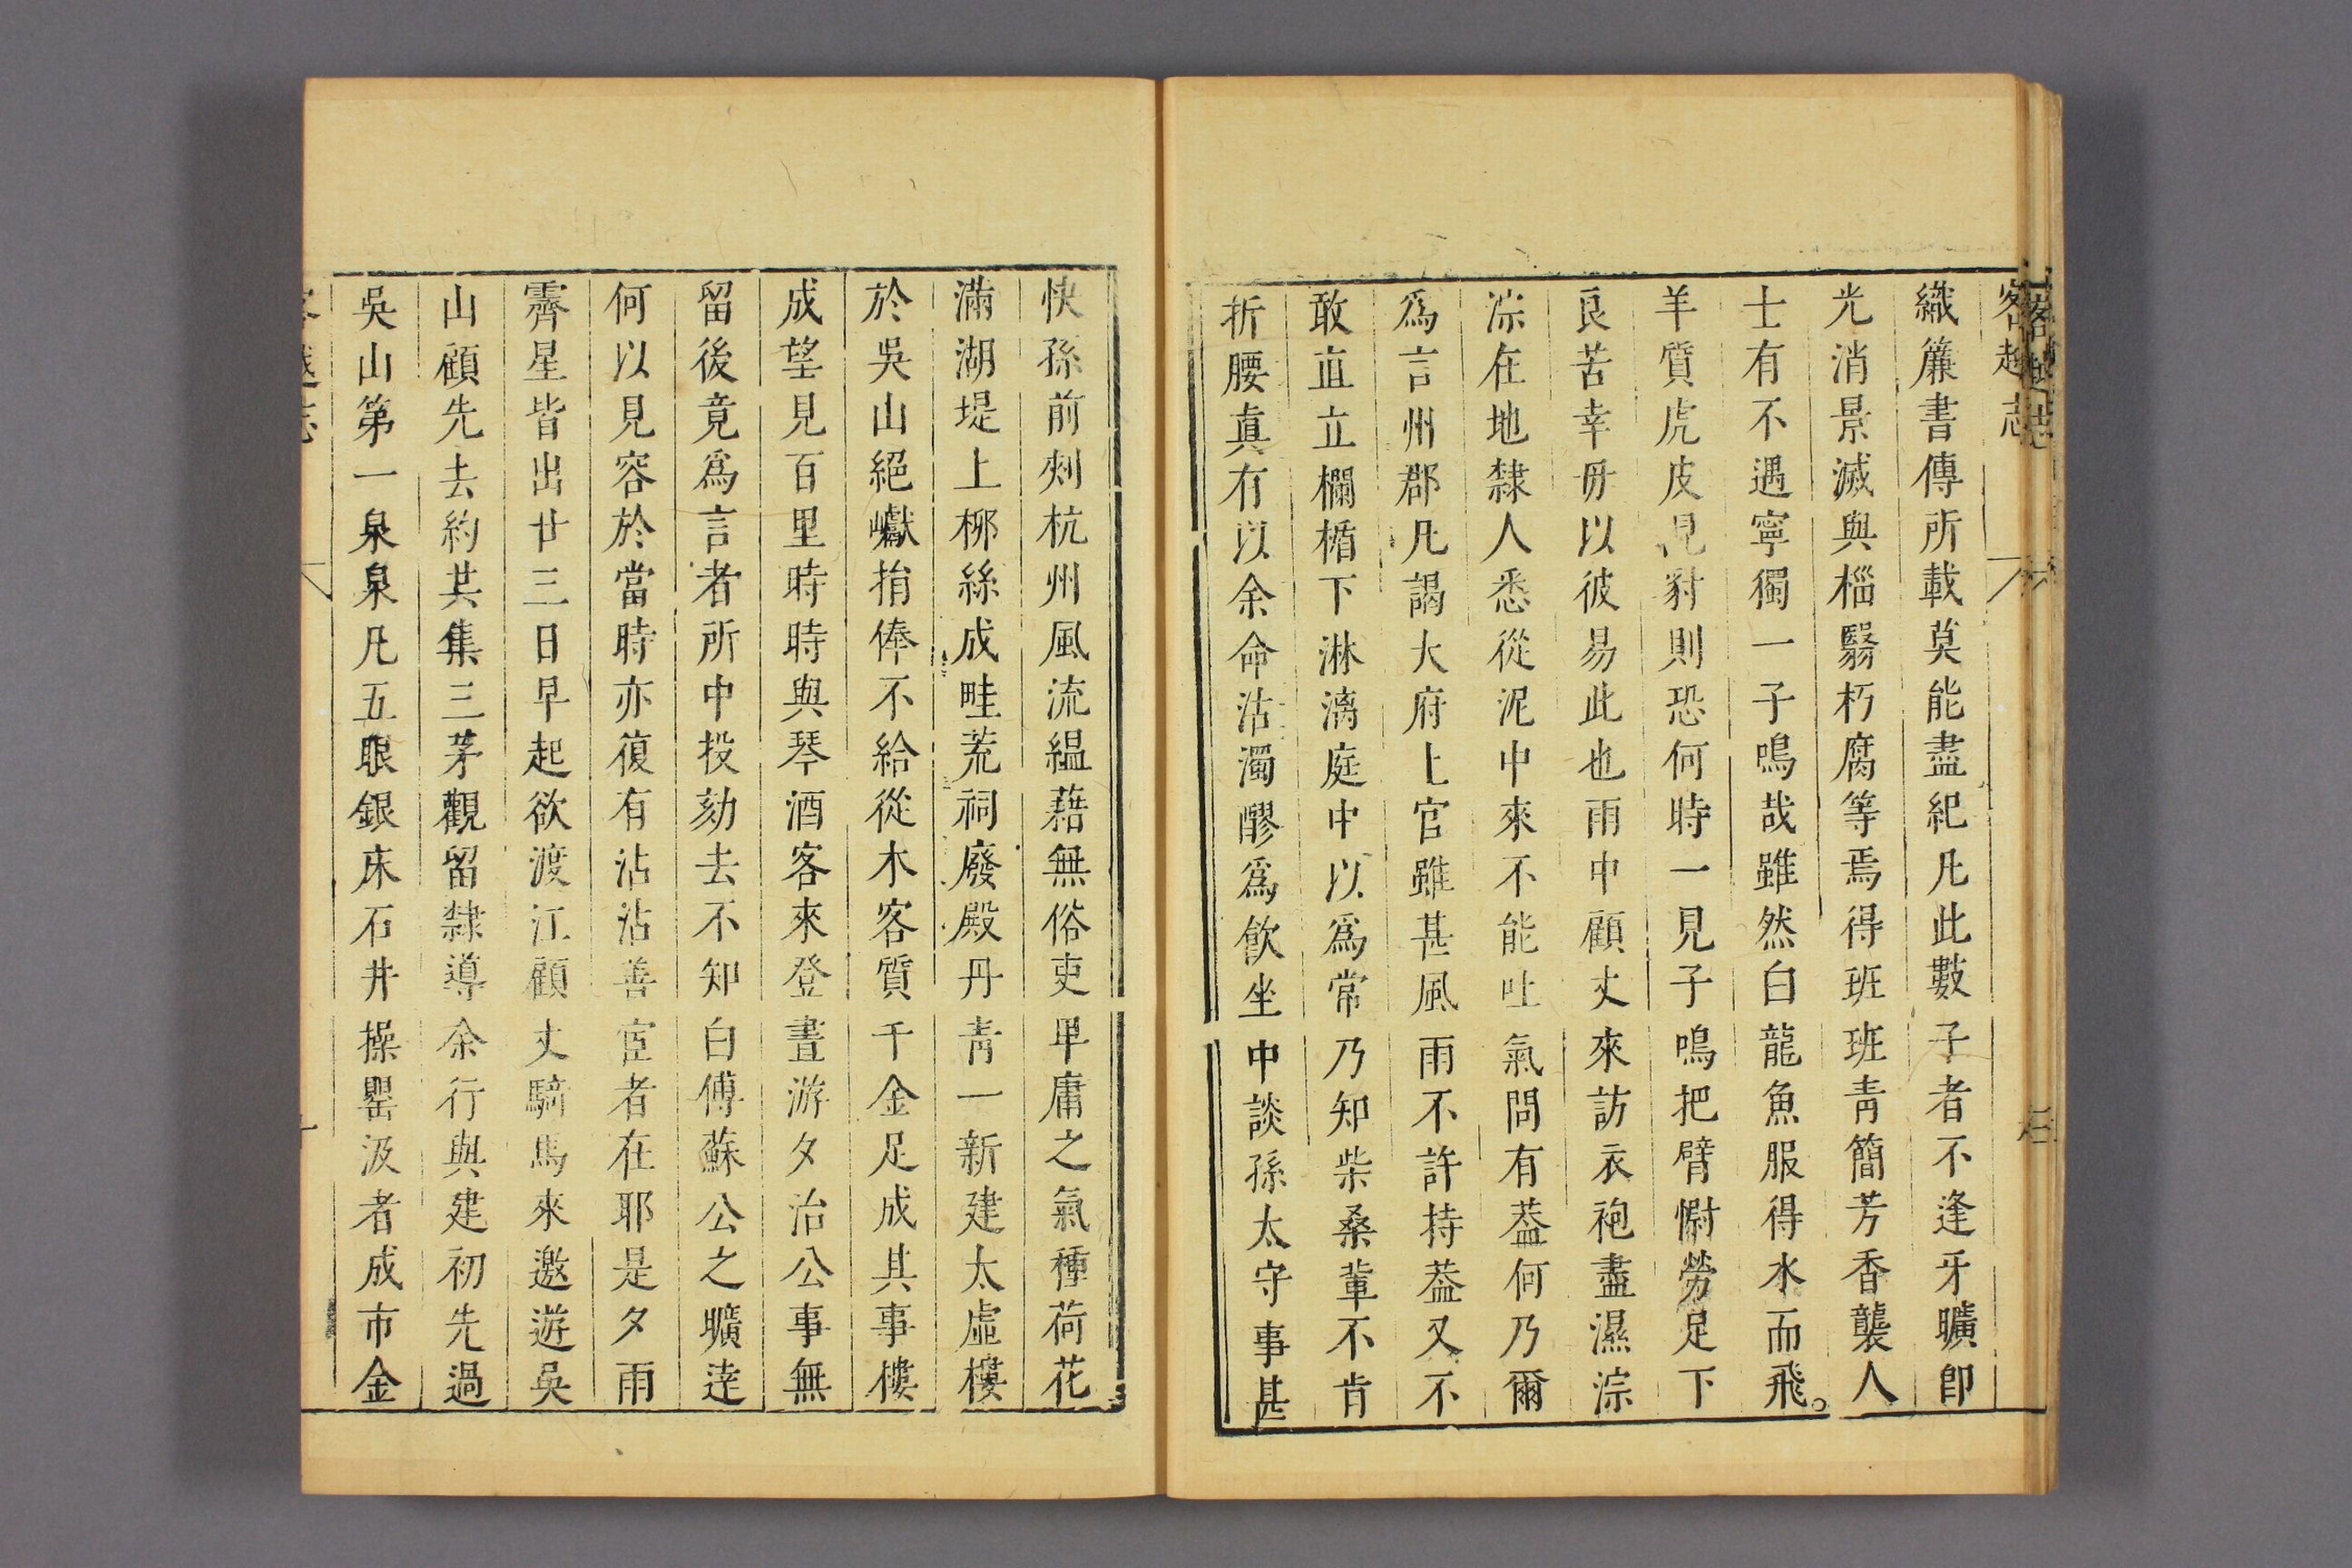 客越志
織簾書傳所載莫能盡紀凡此數子者不逢牙曠卽
光消景滅與榴翳朽腐等焉得班班靑簡芳香襲人
士有不遇寧獨一子鳴哉雖然白龍魚服得水而飛。
羊質虎皮見豺則恐何時一見子鳴把臂慰勞足下
良苦幸毋以彼易此也雨中顧丈來訪衣袍盡濕淙
淙在地隸人悉從泥中來不能吐氣問有葢何乃爾
爲言州郡凡謁大府上官雖甚風雨不許持葢又不
敢直立欄楯下淋漓庭中以爲常乃知柴桑輩不肯
折腰真有以余命沽濁醪爲飮坐中談孫太守事甚
快孫前刺杭州風流縕藉無俗吏卑庸之氣種荷花
滿湖堤上栁絲成畦荒祠廢殿丹靑一新建太虛樓
於吳山絕巘捐俸不給從木客質千金足成其事樓
成望見百里時時與琴酒客來登晝游夕治公事無
留後竟爲言者所中投劾去不知白傅蘇公之曠達
何以見容於當時亦復有沾沾善宦者在耶是夕雨
霽星皆出廿三日早起欲渡江顧丈騎馬來邀遊吳
山顧先去約其集三茅觀留隸導余行與建初先過
吳山第一泉泉凡五眼銀床石井操罌汲者成市金